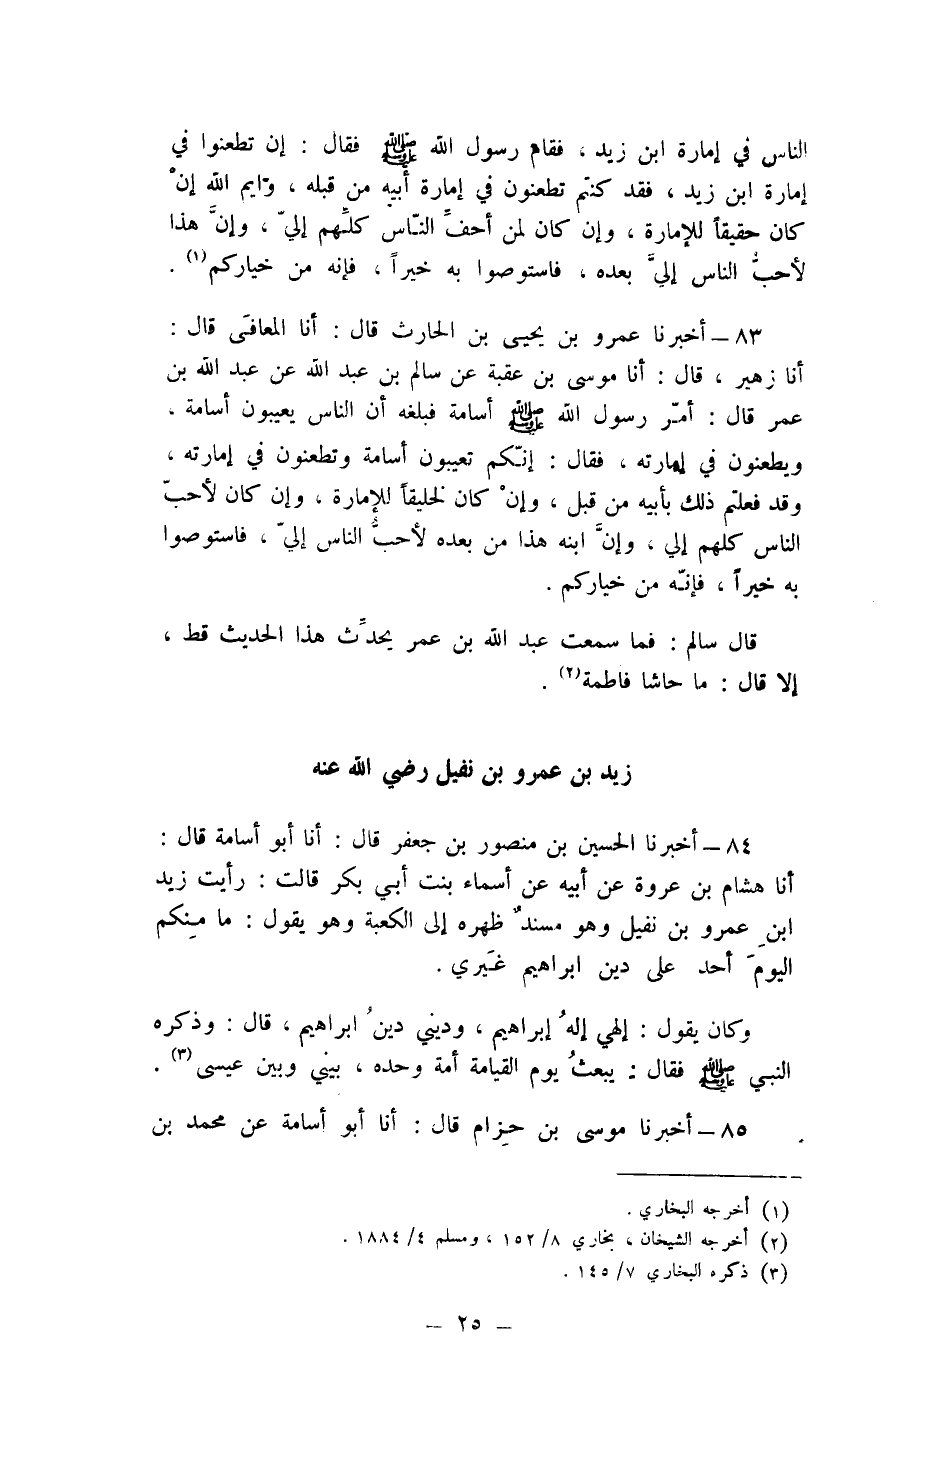 الناس في إمارة ابن زيد ، فقام رسول الله ﷺ فقال : إن تطعنوا في
إمارة ابن زيد ، فقد كنتم تطعنون في إمارة أبيه من قبله ، وايم الله إنْ
كان حقيقاً للإمارة ، وإن كان لمن أحفِّ النّاس كلِّهم إليّ ، وإنَّ هذا
لأحبُّ الناس إليَّ بعده ، فاستوصوا به خيراً ، فإنه من خياركم(١) .
٨٣ – أخبرنا عمرو بن يحيى بن الحارث قال : أنا المعافَى قال :
أنا زهير ، قال : أنا موسى بن عقبة عن سالم بن عبد الله عن عبد الله بن
عمر قال : أمّر رسول الله ﷺ أسامة فبلغه أن الناس يعيبون أسامة ،
ويطعنون في إمارته ، فقال : إنّكم تعيبون أسامة وتطعنون في إمارته ،
وقد فعلتم ذلك بأبيه من قبل ، وإنْ كان لخليقاً للإمارة ، وإن كان لأحبّ
الناس كلهم إلي ، وإنَّ ابنه هذا من بعده لأحبُّ الناس إليّ ، فاستوصوا
به خيراً ، فإنّه من خياركم .
قال سالم : فما سمعت عبد الله بن عمر يحدِّث هذا الحديث قط ،
إلا قال : ما حاشا فاطمة(٢) .
زيد بن عمرو بن نفيل رضي الله عنه
٨٤ – أخبرنا الحسين بن منصور بن جعفر قال : أنا أبو أسامة قال :
أنا هشام بن عروة عن أبيه عن أسماء بنت أبي بكر قالت : رأيت زيد
ابنِ عمرو بن نفيل وهو مسندٌ ظهره إلى الكعبة وهو يقول : ما مِنكم
اليومَ أحد على دين ابراهيم غَيري .
وكان يقول : إلهي إلهُ إبراهيم ، وديني دينُ ابراهيم ، قال : وذكره
النبي ﷺ فقال : يبعثُ يوم القيامة أمة وحده ، بيني وبين عيسى(٣) .
٨٥ – أخبرنا موسى بن حِزام قال : أنا أبو أسامة عن محمد بن
(١) أخرجه البخاري .
(٢) أخرجه الشيخان ، بخاري ٨/ ١٥٢ ، ومسلم ٤/ ١٨٨٤ .
(٣) ذكره البخاري ٧/ ١٤٥ .
– ٢٥ –